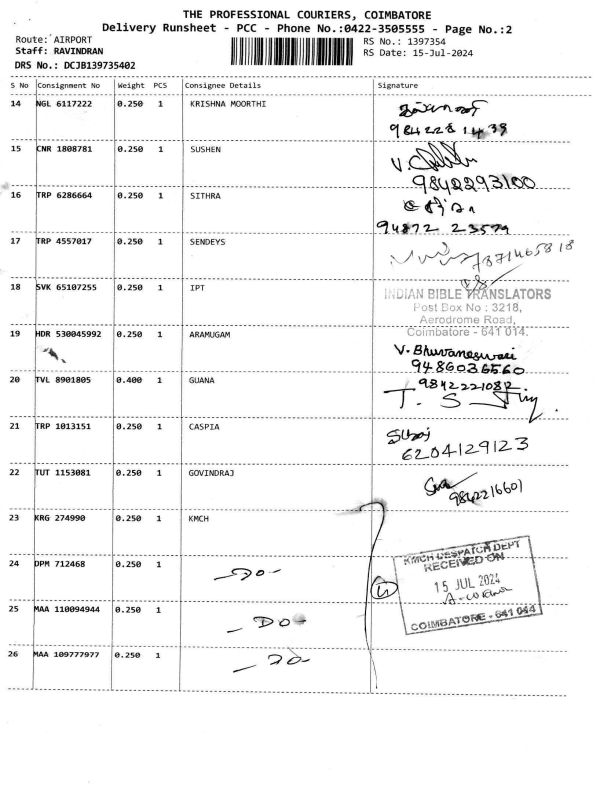 THE PROFESSIONAL COURIERS, COIMBATORE
Delivery Runsheet - PCC - Phone No.:0422-3505555 - Page No.:2
Route: AIRPORT RS No.: 1397354
Staff: RAVINDRAN RS Date: 15-Jul-2024
DRS No.: DCJB139735402
S No Consignment No Weight PCS Consignee Details Signature
14 NGL 6117222 0.250 1 KRISHNA MOORTHI
15 CNR 1808781 0.250 1 SUSHEN
9842293100
16 TRP 6286664 0.250 1 SITHRA
94872 23579
17 TRP 4557017 0.250 1 SENDEYS
18 SVK 65107255 0.250 1 IPT
INDIAN BIBLE TRANSLATORS
Post Box No : 3218,
Aerodrome Road,
Coimbatore - 641 014.
19 HDR 530045992 0.250 1 ARAMUGAM
V. Bhuvaneswari
9486036560
20 TVL 8901805 0.400 1 GUANA
9842221082
21 TRP 1013151 0.250 1 CASPIA
6204129123
22 TUT 1153081 0.250 1 GOVINDRAJ
9842216601
23 KRG 274990 0.250 1 KMCH
24 DPM 712468 0.250 1 -DO-
KMCH DESPATCH DEPT
RECEIVED ON
15 JUL 2024
COIMBATORE - 641 014
25 MAA 110094944 0.250 1 - DO -
26 MAA 109777977 0.250 1 - DO -